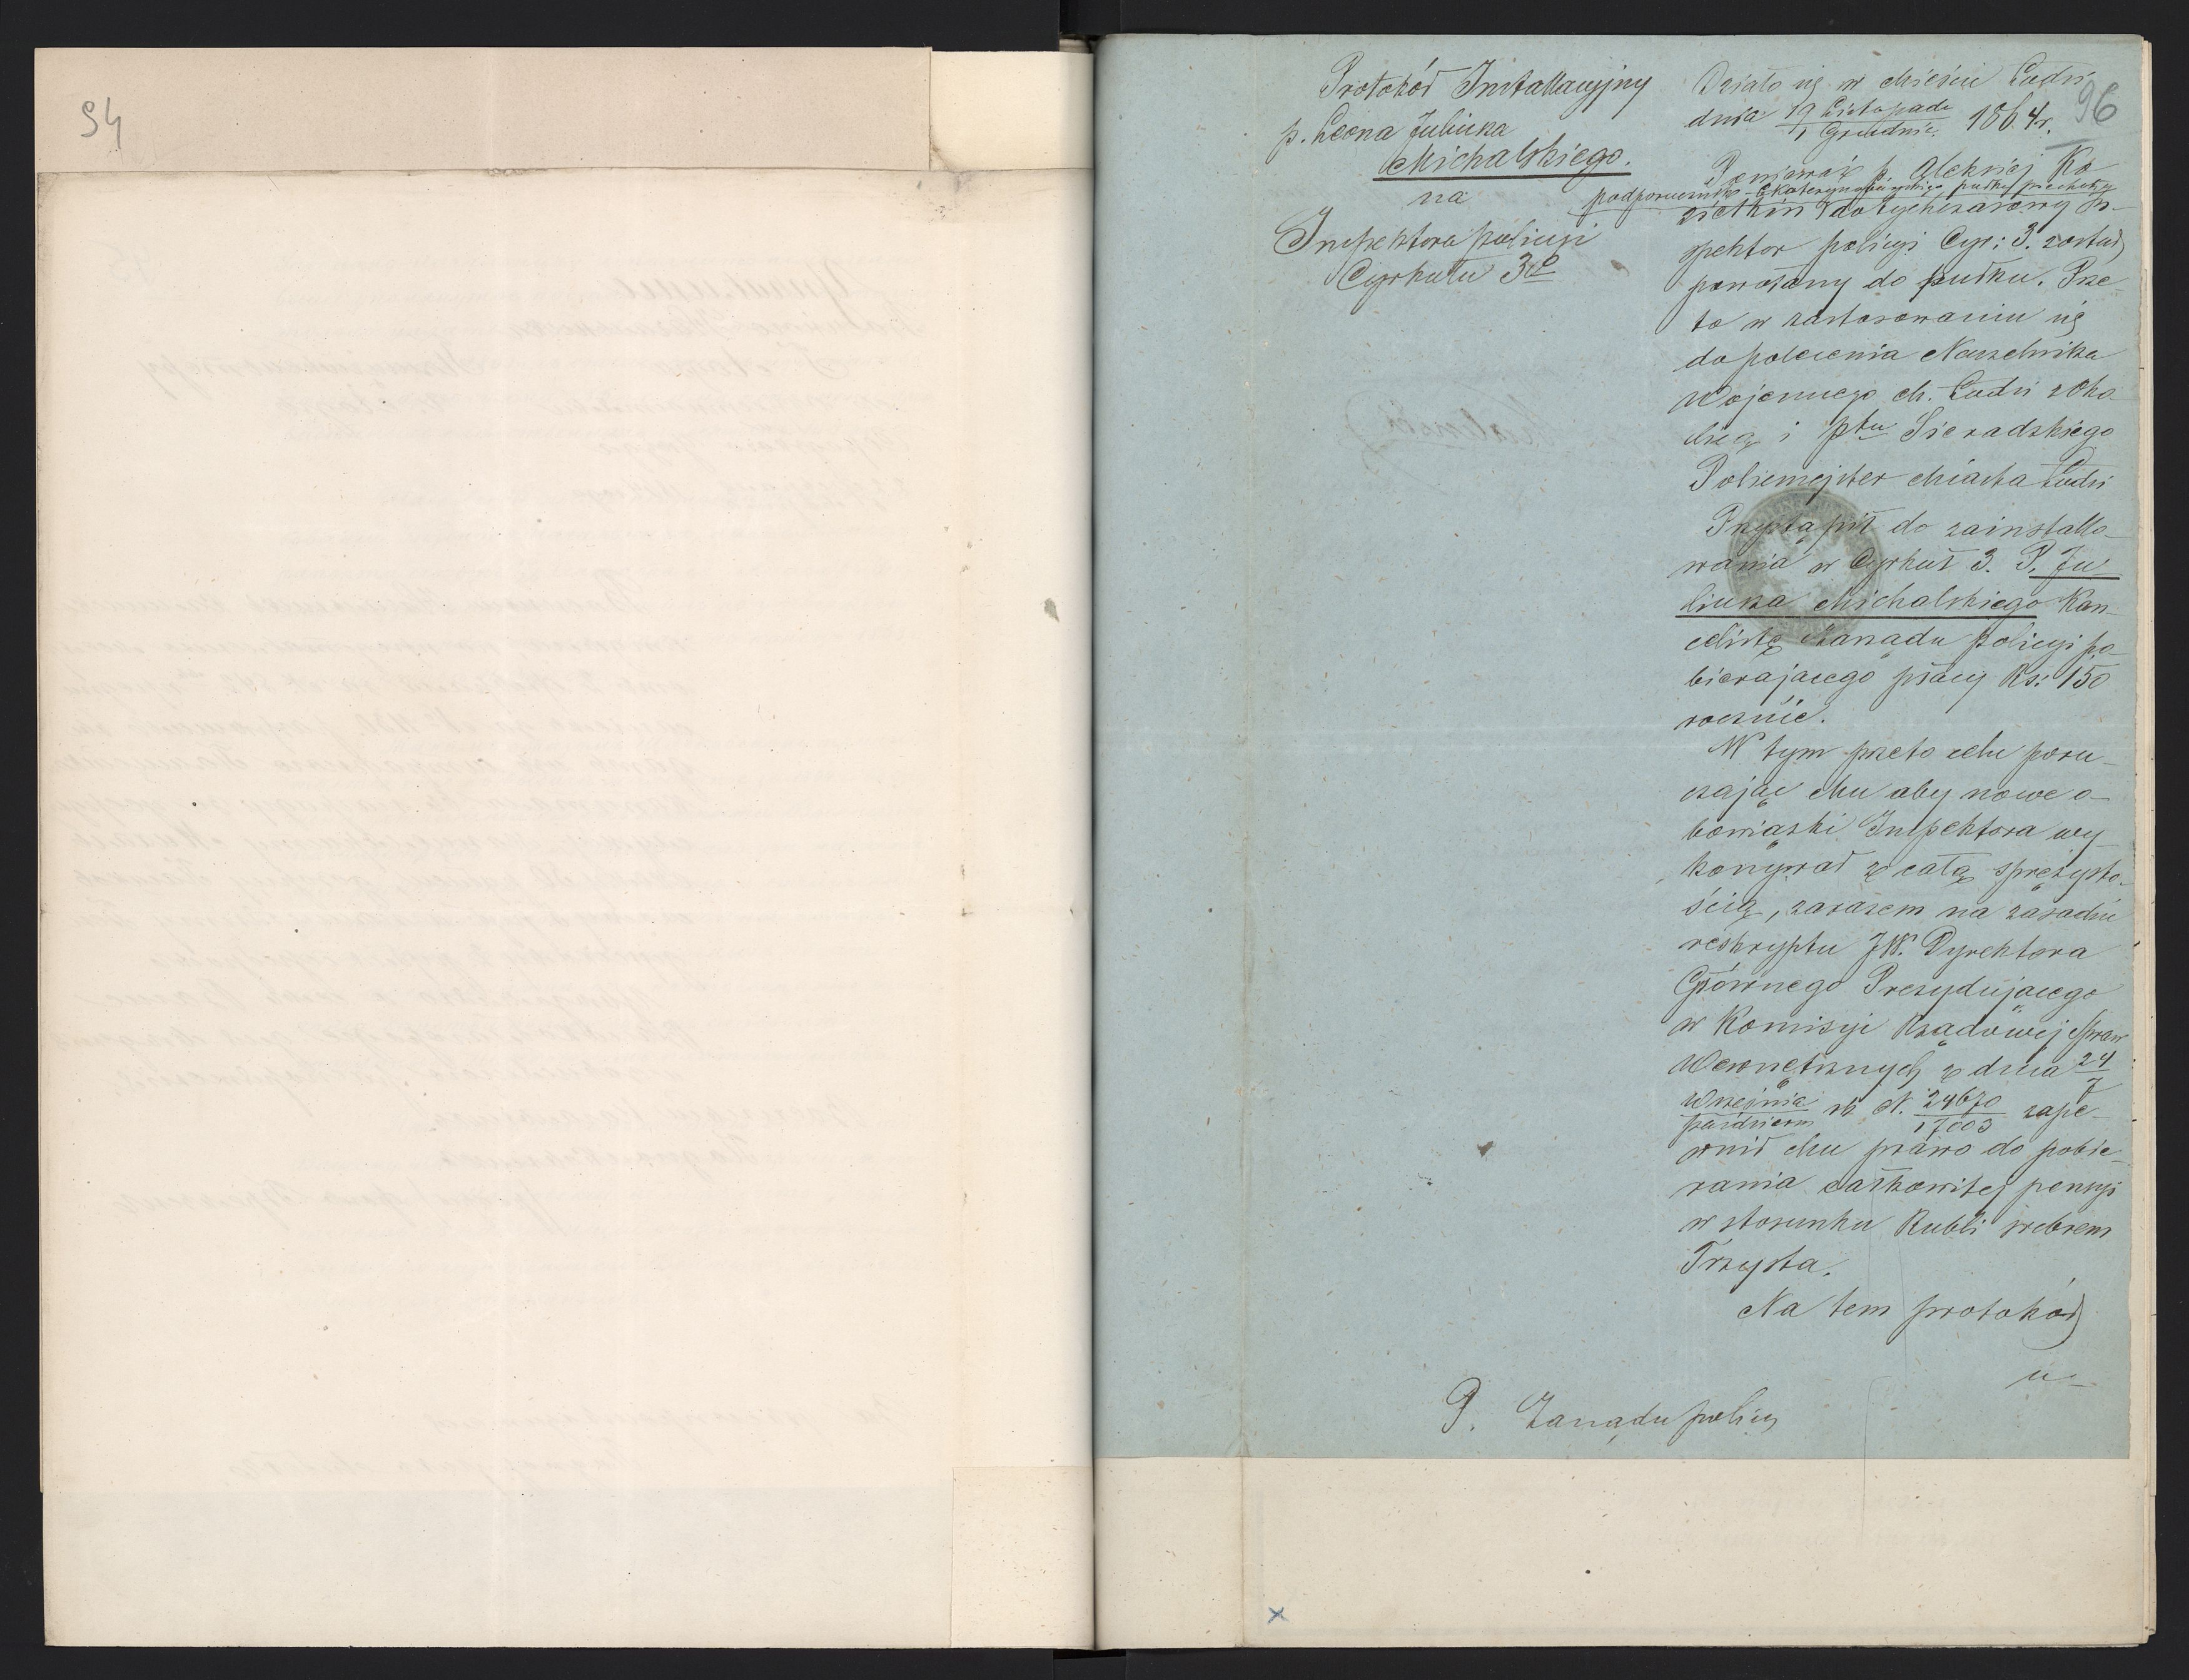 94
96
Protokół Installacyjny
p. Leona Juliusza
Michalskiego.
na
Inspektora policyi
Cyrkułu 3º
Działo się w Mieście Łodzi
dnia 19 Listopada / 1 Grudnia 1864 r.
Ponieważ p. Aleksiej Ko
podporucznik Ekaterynoburgskiego pułku piechoty
zietkin dotychczasowy In-
spektor policyi Cyr: 3. został
powołany do pułku. Prze
to w zastosowaniu się
do polecenia Naczelnika
Wojennego M. Łodzi z Oko
licą i Ptu Sieradzkiego
Policmejster Miasta Łodzi
Przystąpił do zainstallo-
wania w Cyrkuł 3. P. Ju
liusza Michalskiego Kan-
cellistę Zarządu policyi po-
bierającego płacy Rs: 150
rocznie.
W tym przeto celu poru-
czając Mu aby nowe o-
bowiązki Inspektora wy-
konywał z całą sprężysto-
ścią, zarazem na zasadzie
reskryptu JW. Dyrektora
Głównego Prezydującego
w Komisyi Rządowej Spraw
Wewnętrznych z dnia 24/7
Września / paździer rb N. 24670 / 17003 zape-
wnił Mu prawo do pobie-
rania całkowitej pensyi
w stosunku Rubli srebrem
Trzysta.
Na tem protokół
u-
P. Zarządu policyi
x